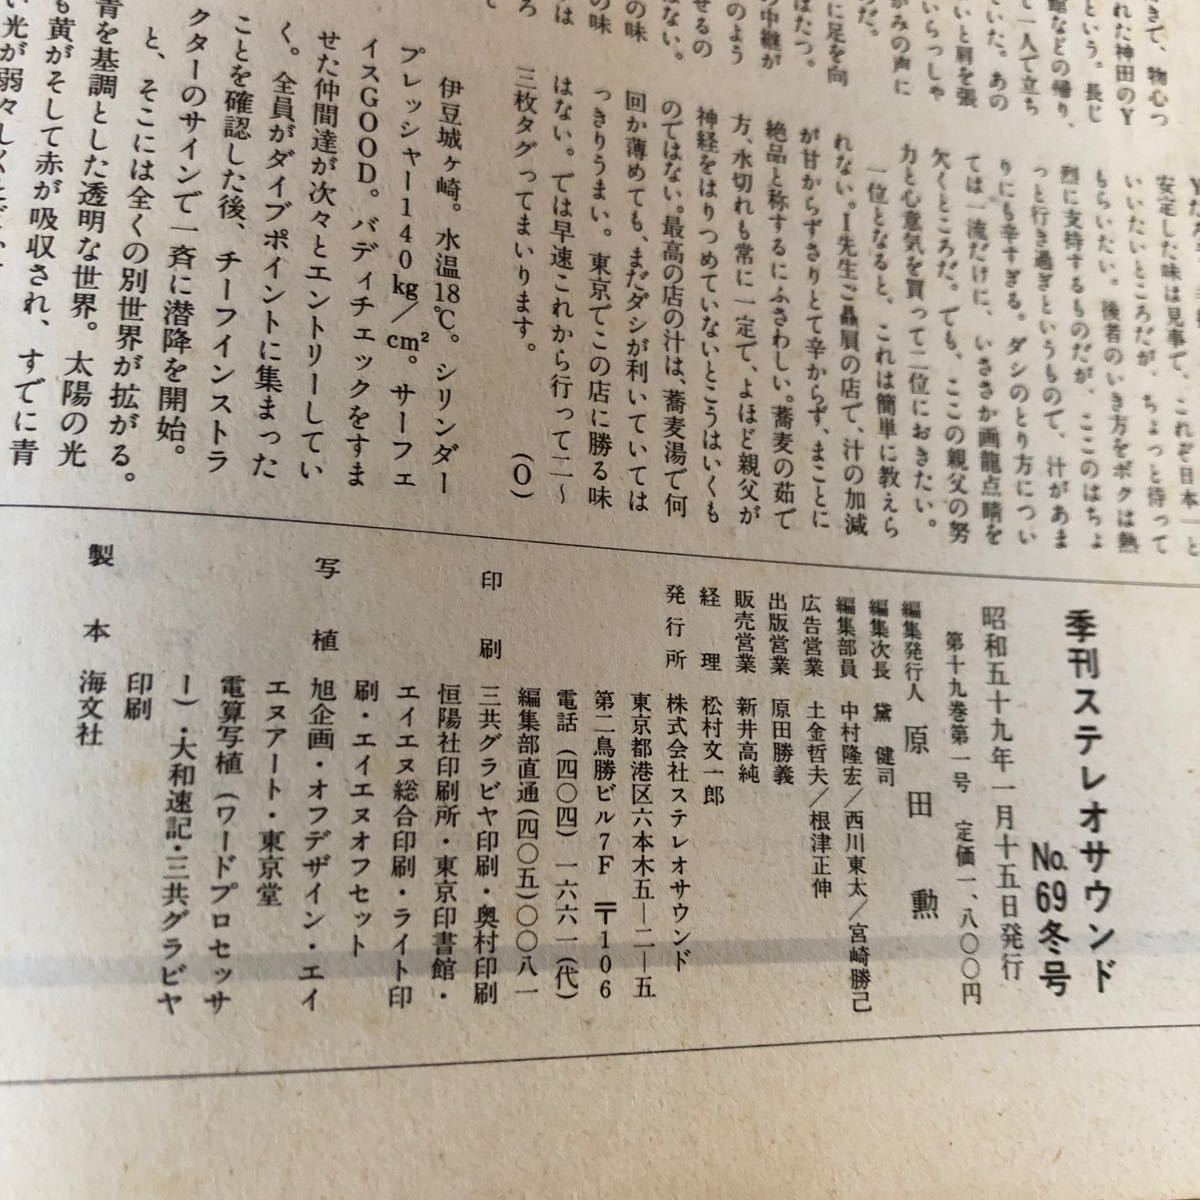 きで、物心つ
れた神田のY
という。長じ
館などの帰り、
て一人で立ち
ていた。あの
いと肩を張
いらっしゃ
がみの声に
だ。
に足を向
ばたつ。
の中継が
のよう
せるの
はない。
の味
の味
りは
ろ
て
安定した味は見事で、これぞ日本一と
いいたいところだが、ちょっと待って
もらいたい。後者のいき方をボクは熱
烈に支持するものだが、ここのはちょ
っと行き過ぎというもので、汁があま
りにも辛すぎる。ダシのとり方につい
ては一流だけに、いささか画龍点睛を
欠くところだ。でも、ここの親父の努
力と心意気を買って二位におきたい。
一位となると、これは簡単に教えら
れない。I先生ご贔屓の店で、汁の加減
が甘からずさりとて辛からず、まことに
絶品と称するにふさわしい。蕎麦の茹で
方、水切れも常に一定で、よほど親父が
神経をはりつめていないとこうはいくも
のではない。最高の店の汁は、蕎麦湯で何
回か薄めても、まだダシが利いていては
っきりうまい。東京でこの店に勝る味
はない。では早速これから行って二〜
三枚タグってまいります。　(O)
伊豆城ヶ崎。水温18℃。シリンダー
プレッシャー140kg/cm²。サーフェ
イスGOOD。バディチェックをすま
せた仲間達が次々とエントリーしてい
く。全員がダイブポイントに集まった
ことを確認した後、チーフインストラ
クターのサインで一斉に潜降を開始。
と、そこには全くの別世界が拡がる。
青を基調とした透明な世界。太陽の光
も黄がそして赤が吸収され、すでに青
季刊ステレオサウンド
No.69冬号
昭和五十九年一月十五日発行
第十九巻第一号　定価一、八〇〇円
編集発行人　原田　勲
編集次長　黛　健司
編集部員　中村隆宏／西川東太／宮崎勝己
広告営業　土金哲夫／根津正伸
出版営業　原田勝義
販売営業　新井高純
経理　松村文一郎
発行所　株式会社ステレオサウンド
東京都港区六本木五―二―五
第二鳥勝ビル7F　〒106
電話（四〇四）一六六一（代）
編集部直通（四〇五）〇〇八一
印刷　三共グラビヤ印刷・奥村印刷
恒陽社印刷所・東京印書館・
エイエヌ総合印刷・ライト印
刷・エイエヌオフセット
写植　旭企画・オフデザイン・エイ
エヌアート・東京堂
電算写植（ワードプロセッサ
ー）・大和速記・三共グラビヤ
印刷
製本　海文社